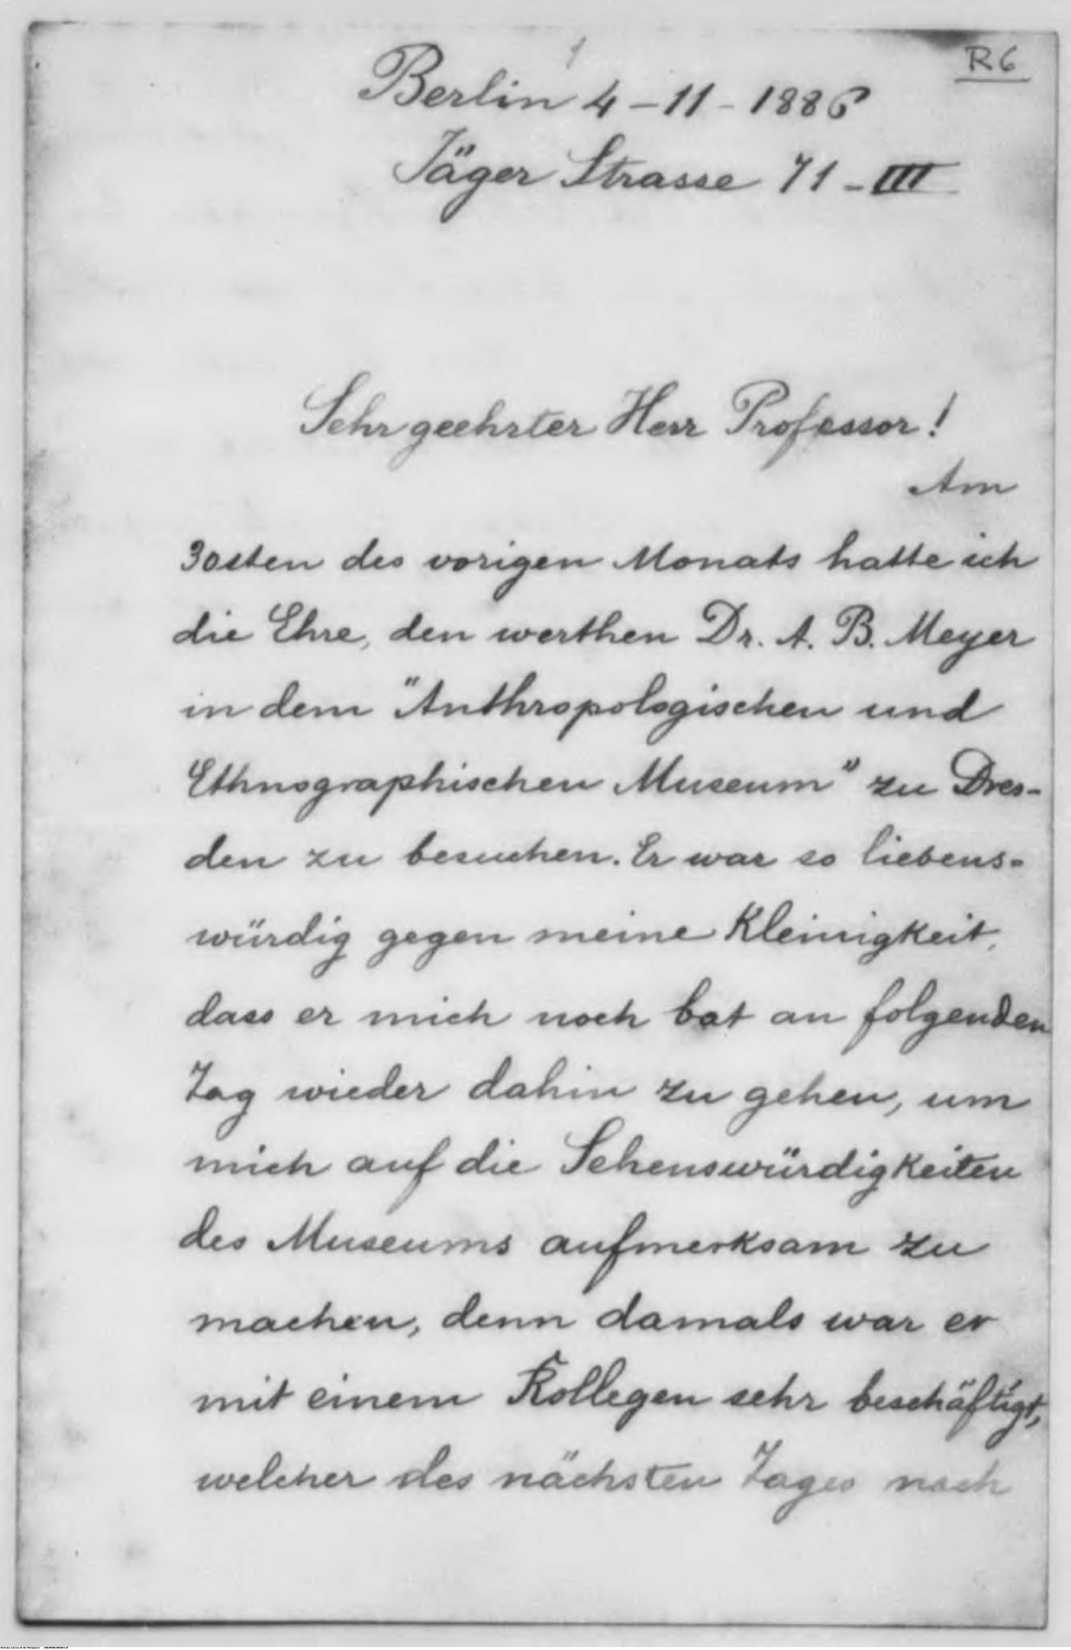 R6
1
Berlin 4-11-1886
Jäger Strasse 71-III
Sehr geehrter Herr Professor!
Am
30sten des vorigen Monats hatte ich
die Ehre, den werthen Dr. A. B. Meyer
in dem "Anthropologischen und
Ethnographischen Museum" zu Dres-
den zu besuchen. Er war so liebens-
würdig gegen meine Kleinigkeit,
dass er mich noch bat an folgenden
Tag wieder dahin zu gehen, um
mich auf die Sehenswürdigkeiten
des Museums aufmerksam zu
machen, denn damals war er
mit einem Kollegen sehr beschäftigt,
welcher des nächsten Tages nach